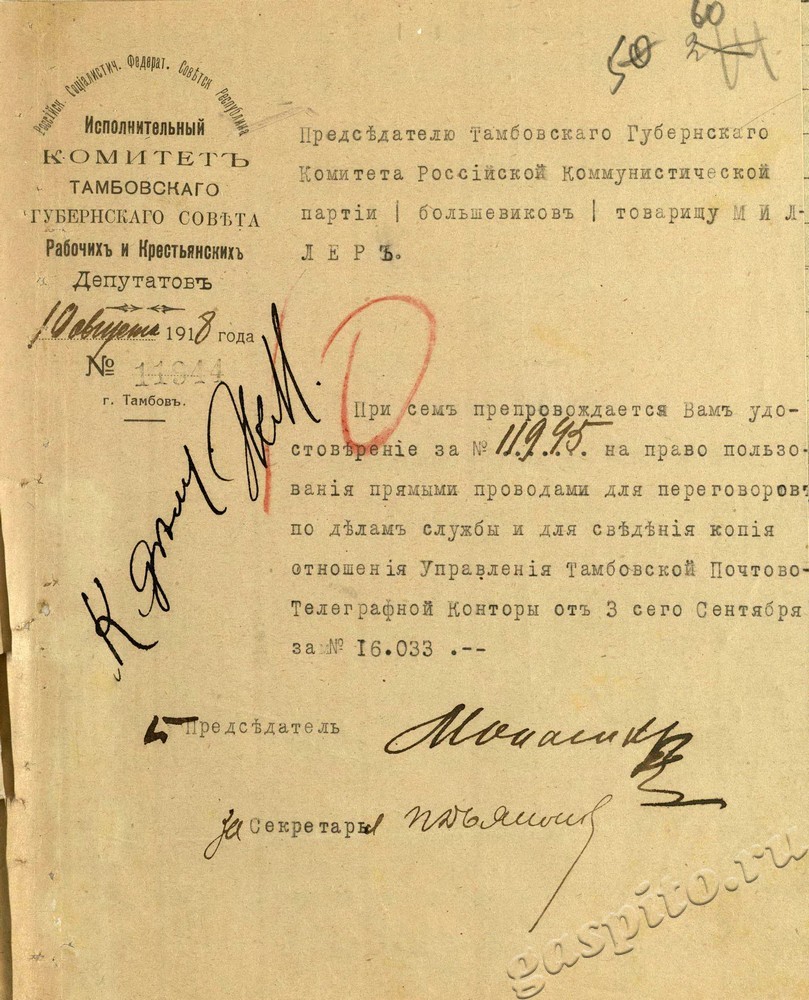 60
50
Россійск. Соціалистич. Федерат. Совѣтск Республика
Исполнительный
КОМИТЕТЪ
ТАМБОВСКАГО
ГУБЕРНСКАГО СОВѢТА
Рабочихъ и Крестьянскихъ
Депутатовъ
10 августа 1918 года
№ 11944
г. Тамбовъ.
Предсѣдателю Тамбовскаго Губернскаго
Комитета Россійской Коммунистической
партіи | большевиковъ | товарищу М И Л-
Л Е Р Ъ.
К делу
При семъ препровождается Вамъ удо-
стовѣреніе за № 11.995. на право пользо-
ванія прямыми проводами для переговоровъ
по дѣламъ службы и для свѣдѣнія копія
отношенія Управленія Тамбовской Почтово-
Телеграфной Конторы отъ 3 сего Сентября
за № 16.033 .--
Предсѣдатель
за Секретаря
gaspito.ru